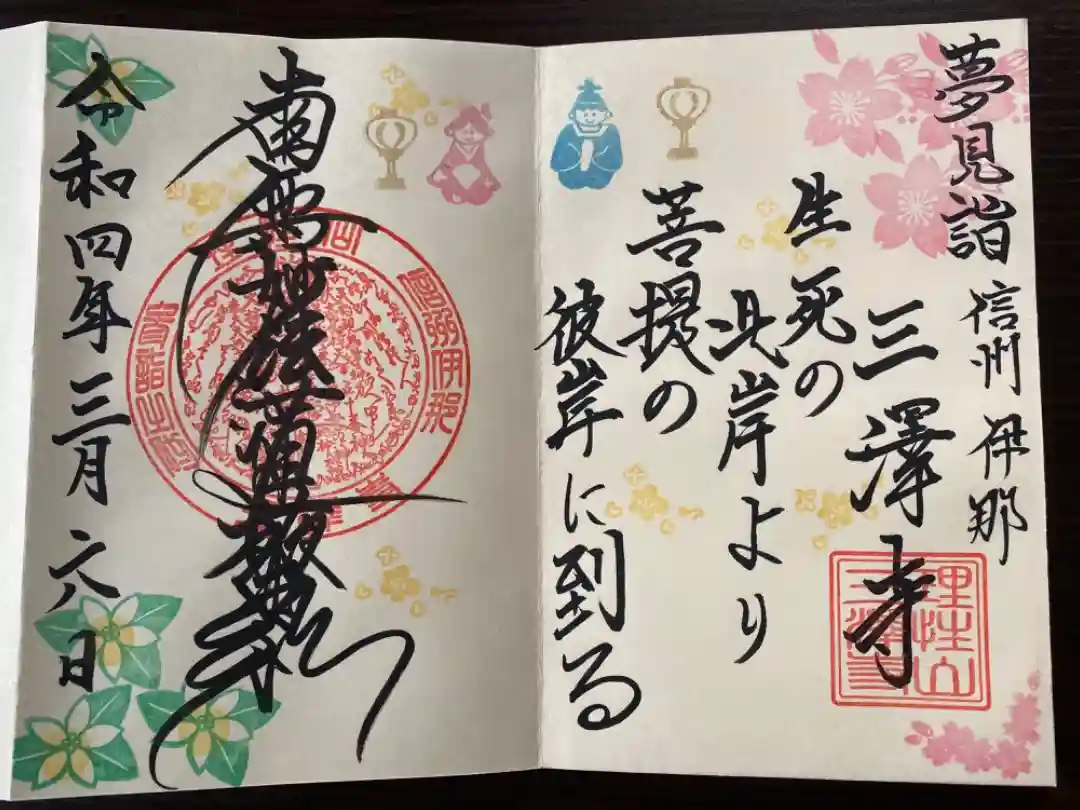 夢見詣
信州 伊那
三澤寺
理性山
三澤寺
生死の
此岸より
菩提の
彼岸に到る
南無妙法蓮華経
令和四年三月六日